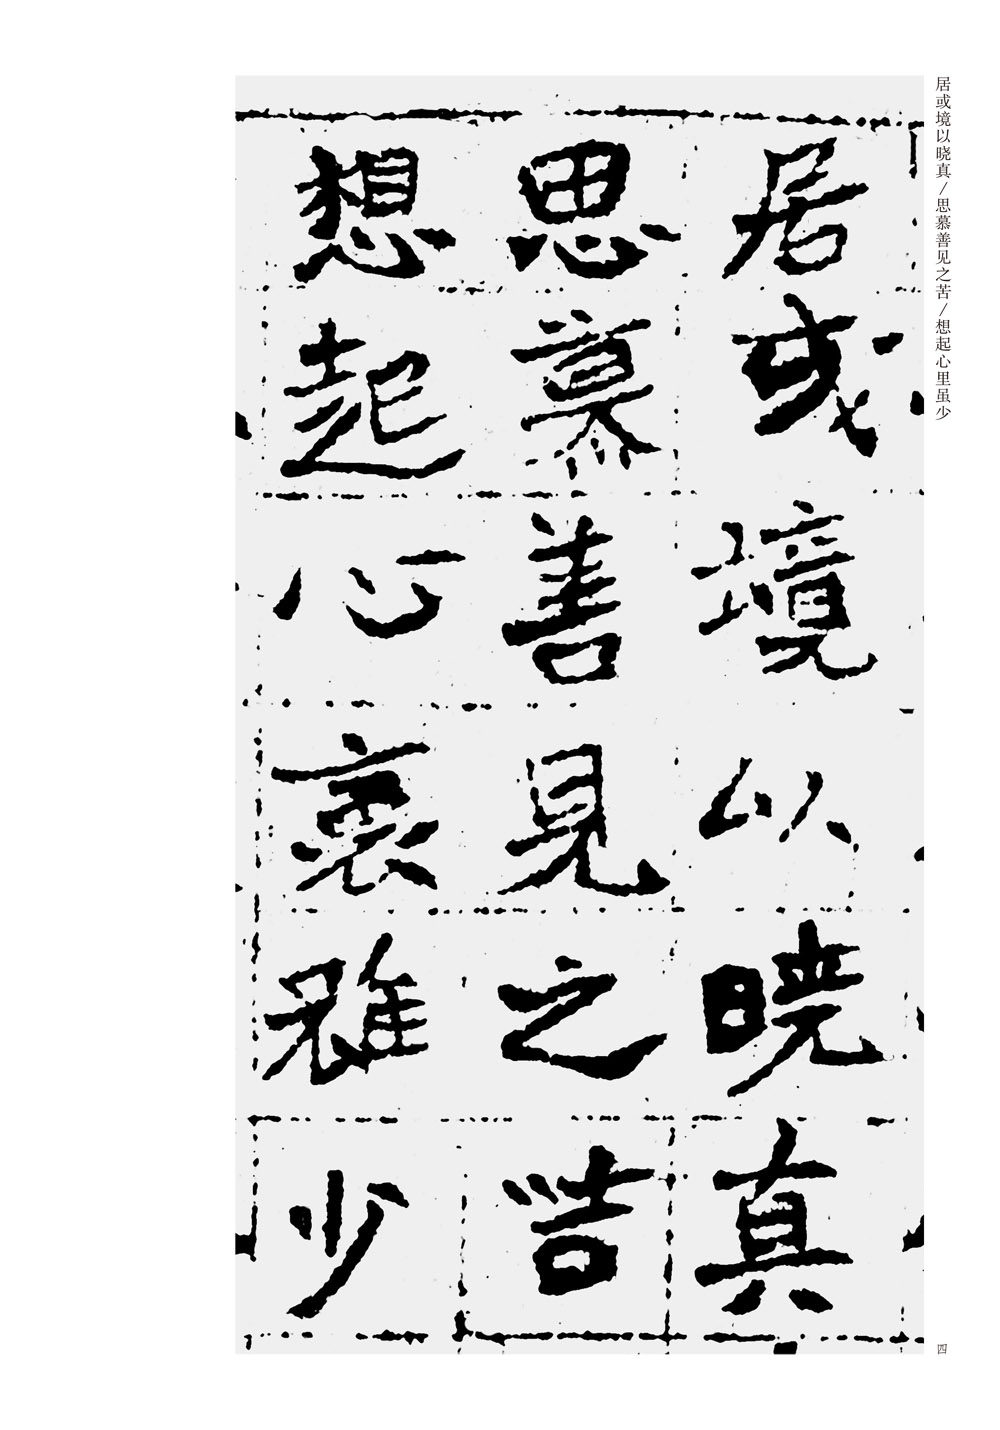 居或境以晓真/思慕善见之苦/想起心里虽少
居或境以曉真
思慕善見之苦
想起心裏雖少
四